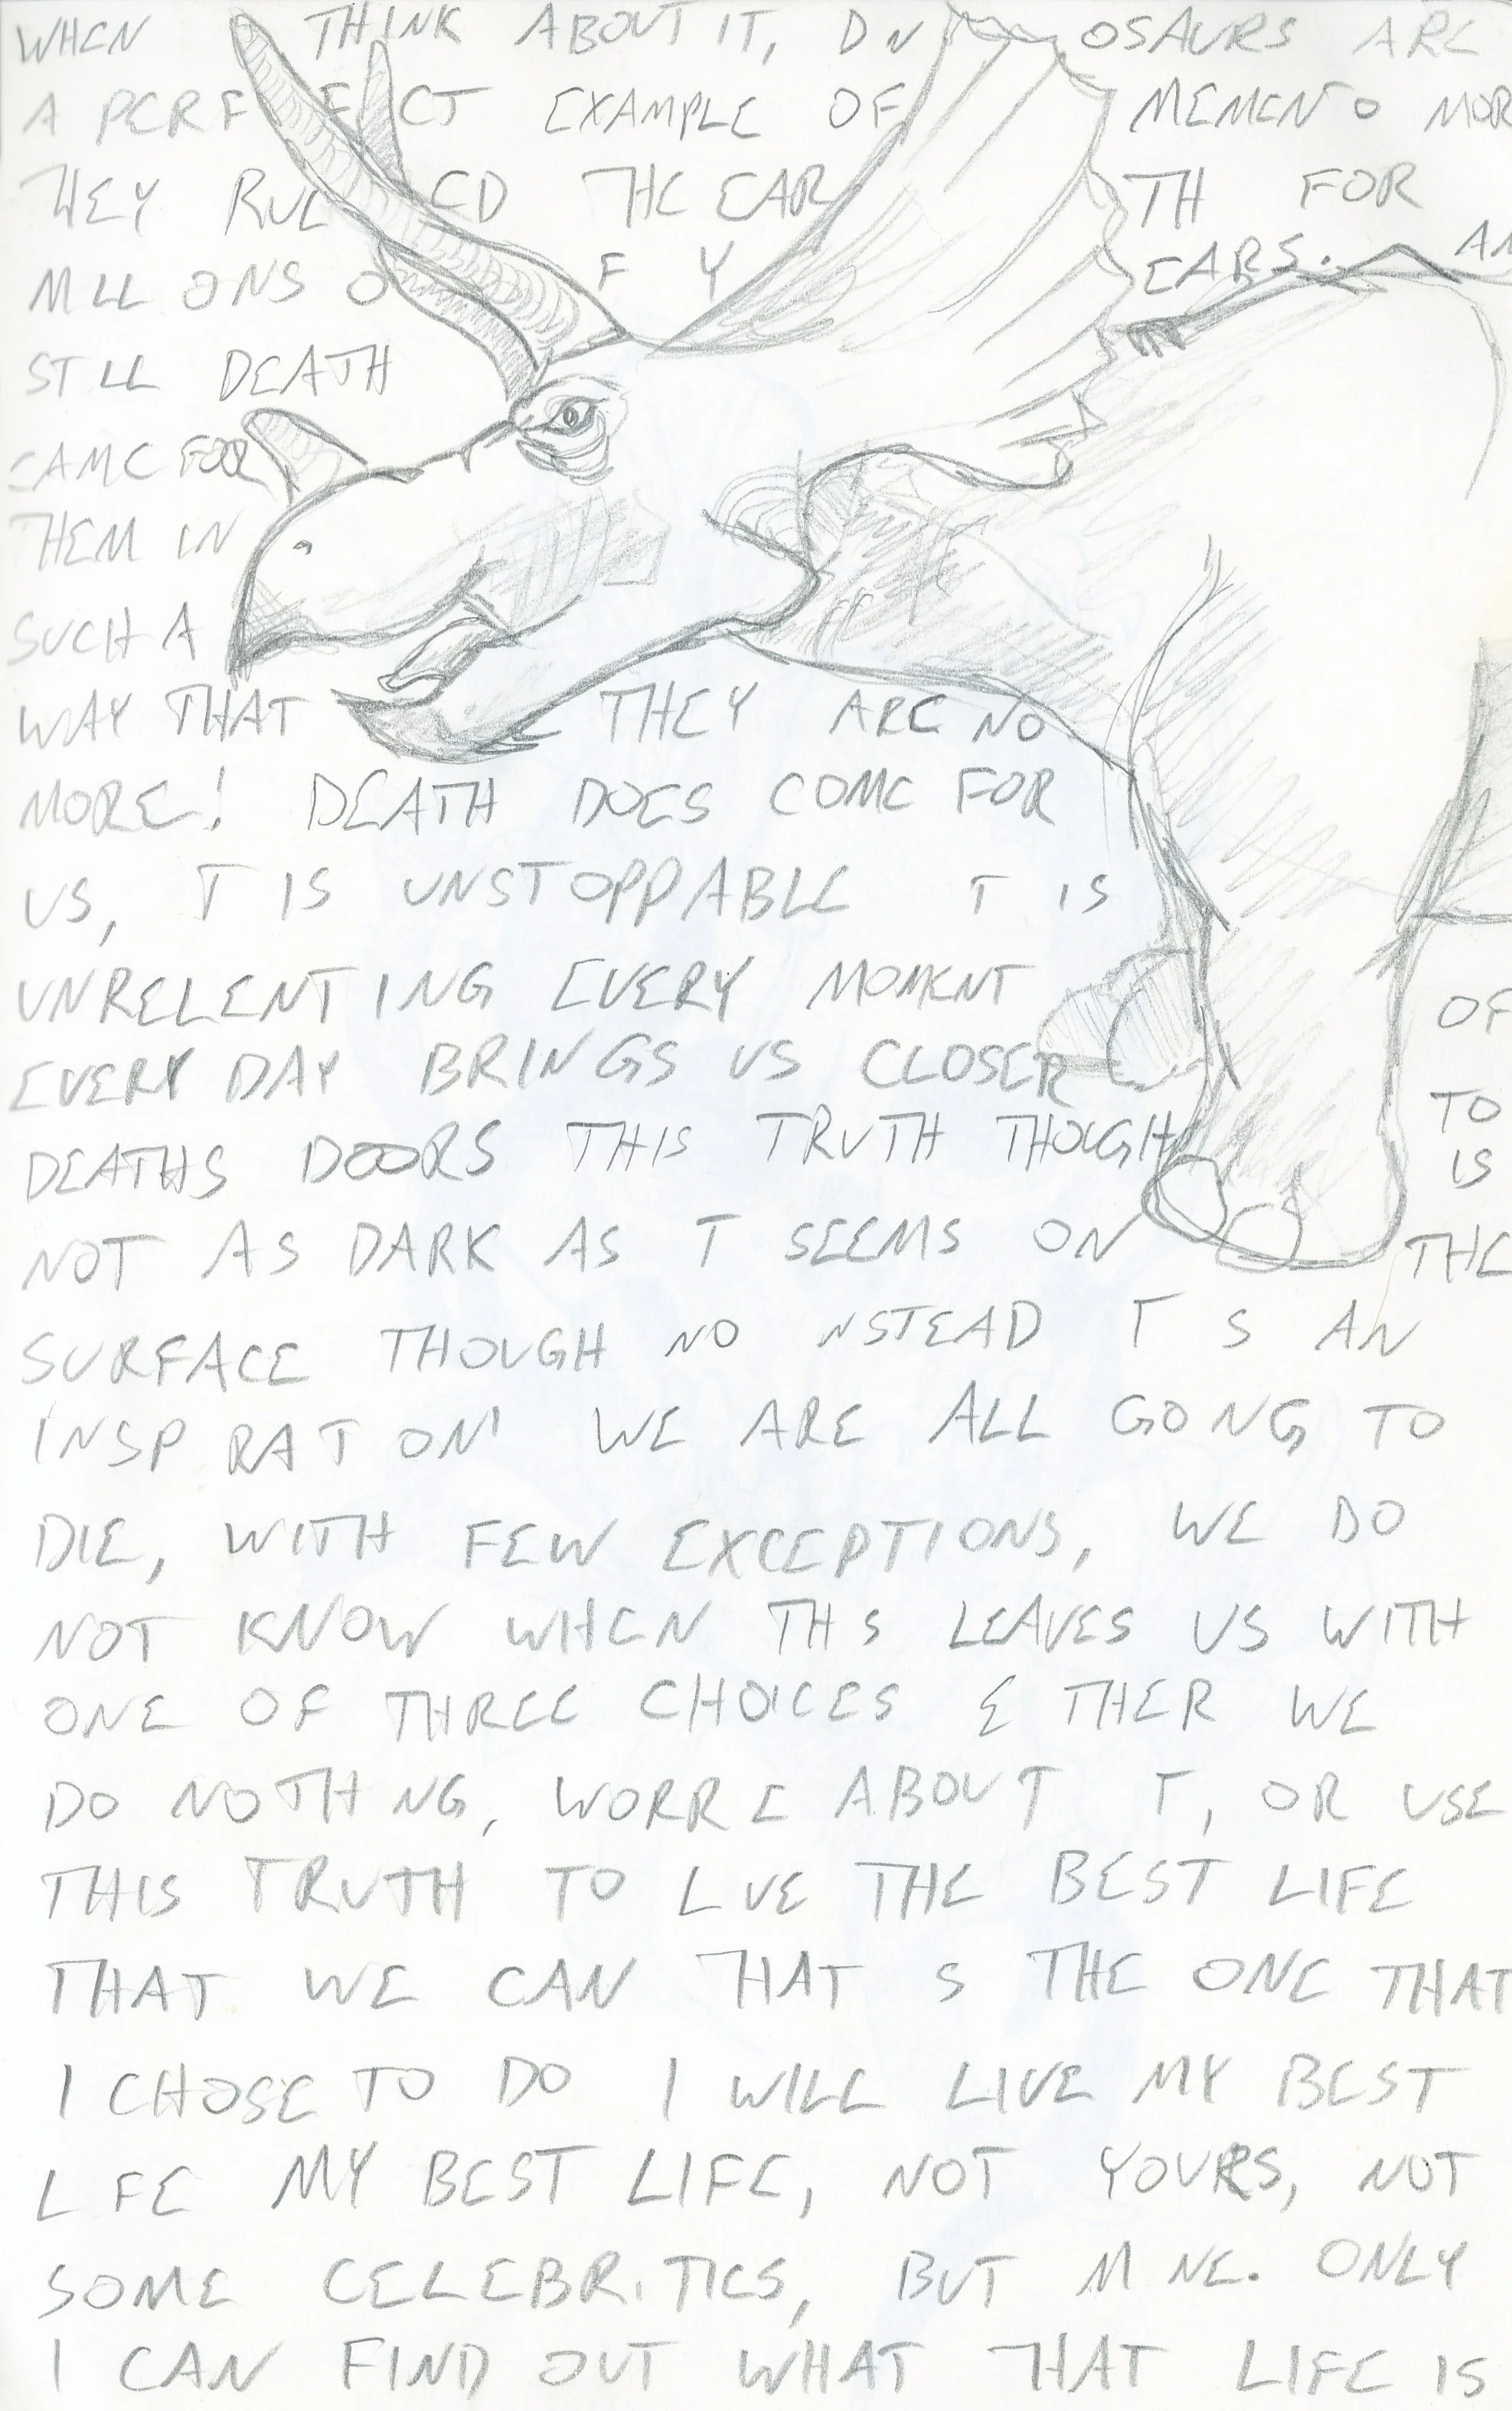 WHEN THINK ABOUT IT, DN OSAURS ARE
A PERFFECT EXAMPLE OF MEMENTO MOR
THEY RULED THE EARTH FOR
MLL ONS OF YEARS. AN
STLL DEATH
CAME FOR
THEM IN
SUCH A
WAY THAT THEY ARE NO
MORE! DEATH DOES COME FOR
US, T IS UNSTOPPABLE T IS
UNRELENTING EVERY MOMENT OF
EVERY DAY BRINGS US CLOSER TO
DEATHS DOORS THIS TRUTH THOUGH IS
NOT AS DARK AS T SEEMS ON THE
SURFACE THOUGH NO NSTEAD T S AN
INSP RAT ON! WE ARE ALL GO NG TO
DIE, WITH FEW EXCEPTIONS, WE DO
NOT KNOW WHEN TH S LEAVES US WITH
ONE OF THREE CHOICES E THER WE
DO NOTH NG, WORR E ABOUT T, OR USE
THIS TRUTH TO L VE THE BEST LIFE
THAT WE CAN THAT S THE ONE THAT
I CHOSE TO DO I WILL LIVE MY BEST
L FE MY BEST LIFE, NOT YOURS, NOT
SOME CELEBRITIES, BUT M NE. ONLY
I CAN FIND OUT WHAT THAT LIFE IS